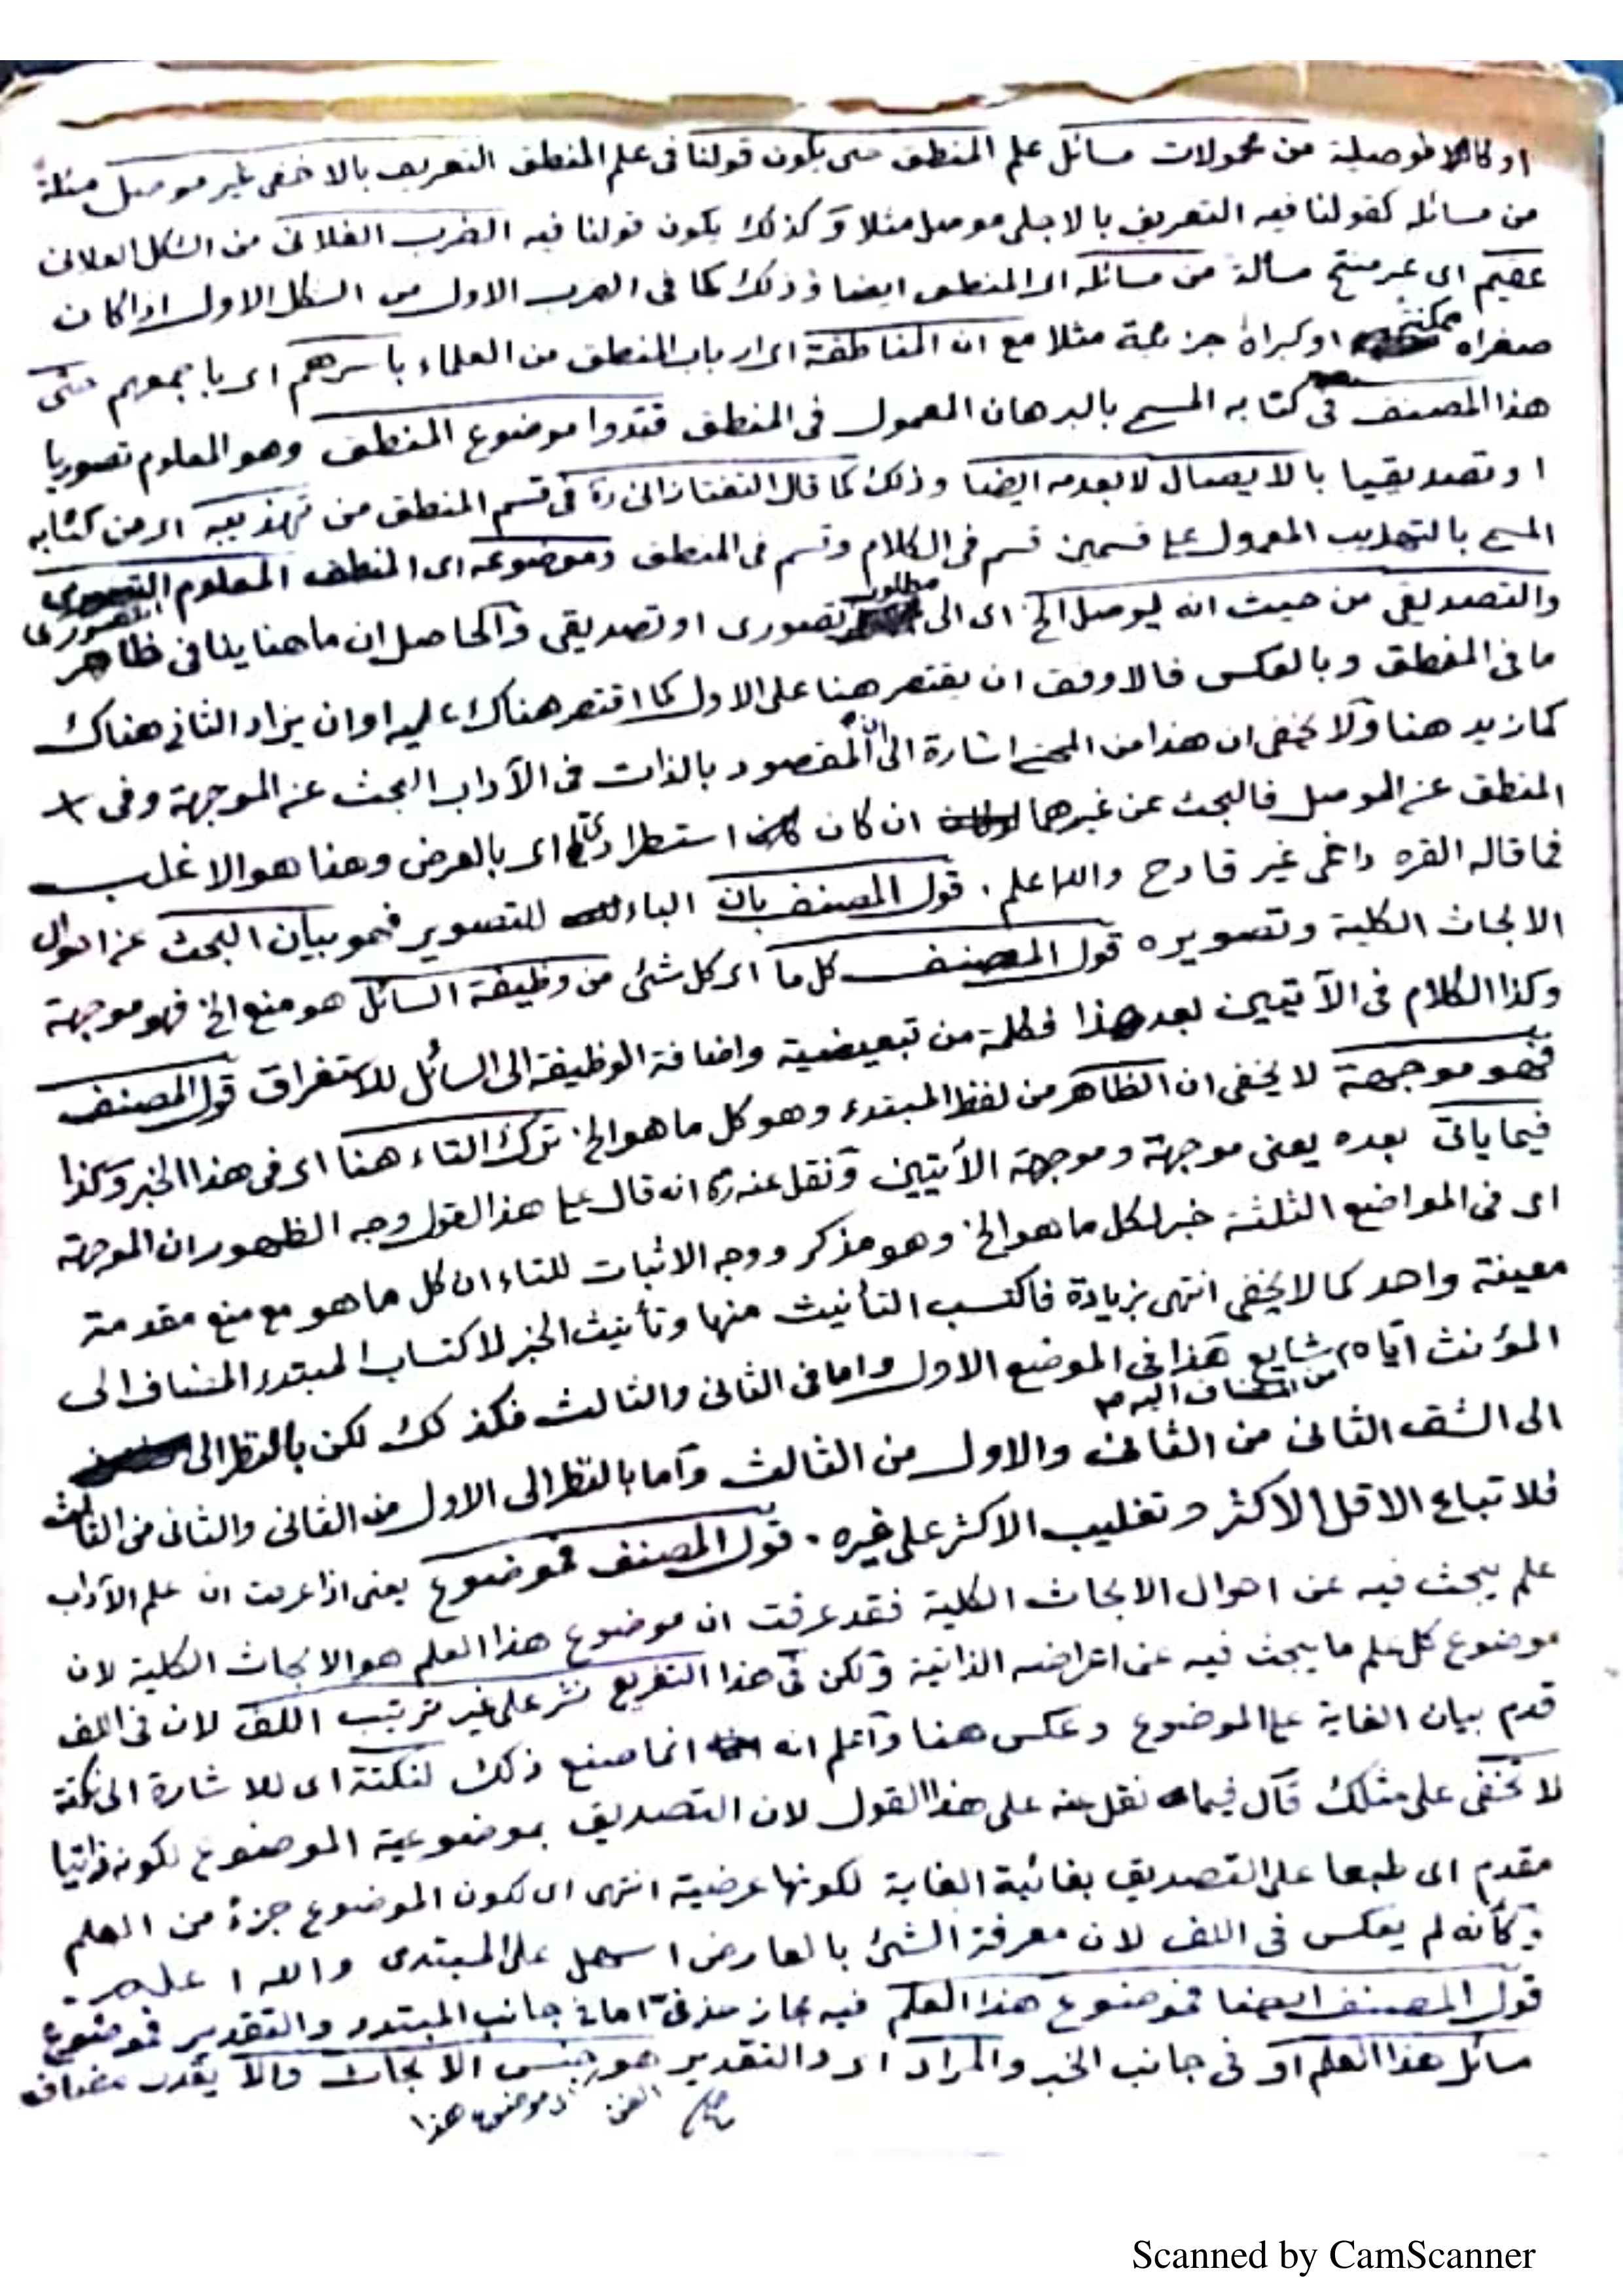 او كالاموصلية من محمولات مسائل علم المنطق حتى يكون قولنا فى علم المنطق التعريف بالاخفى غير موصل مسئلة
من مسائله كقولنا فيه التعريف بالاجلى موصل مثلا وكذلك يكون قولنا فيه الضرب الفلانى من الشكل الفلانى
عقيم اى غير منتج مسألة من مسائله اى المنطق ايضا وذلك كما فى الضرب الاول من الشكل الاول اذا كان
صغراه ممكنة او كبراه جزئية مثلا مع ان المناطقة اى ارباب المنطق من العلماء باسرهم اى باجمعهم حتى
هذا المصنف فى كتابه المسمى بالبرهان المعمول فى المنطق قيدوا موضوع المنطق وهو المعلوم تصوريا
او تصديقيا بالايصال لا بعدمه ايضا وذلك كما قال التفتازانى ره فى قسم المنطق من تهذيبه اى من كتابه
المسمى بالتهذيب المعمول على قسمين قسم فى الكلام وقسم فى المنطق وموضوعه اى المنطق المعلوم التصورى
والتصديقى من حيث انه ليوصل الخ اى الى مطلوب تصورى او تصديقى والحاصل ان ما هنا ينافى ظاهر
ما فى المنطق وبالعكس فالاوفق ان يقتصر هنا على الاول كما اقتصر هناك عليه او ان يزاد الثانى هناك
كما زيد هنا ولا يخفى ان هذا من المحشى اشارة الى ان المقصود بالذات فى الآداب البحث عن الموجهة وفى
المنطق عن الموصل فالبحث عن غيرهما ان كان استطرادى اى بالعرض وهذا هو الاغلب
فما قاله القره داغى غير قادح والله اعلم . قول المصنف بان الباء للتصوير فهو بيان البحث عن احوال
الابحاث الكلية وتصويره قول المصنف كل ما اى كل شئ من وظيفة السائل هو منع الخ فهو موجهة
وكذا الكلام فى الآتيين بعد هذا فكلمة من تبعيضية واضافة الوظيفة الى السائل للاستغراق قول المصنف
فهو موجهة لا يخفى ان الظاهر من لفظ المبتدء وهو كل ما هو الخ ترك التاء هنا اى فى هذا الخبر وكذا
فيما ياتى بعده يعنى موجهة وموجهة الآتيين ونقل عنه ره انه قال على هذا القول وجه الظهور ان الموجهة
اى فى المواضع الثلثة خبر لكل ما هو الخ وهو مذكر ووجه الاثبات للتاء ان كل ما هو مع منع مقدمة
معينة واحد كما لا يخفى انتهى بزيادة فاكتسب التأنيث منها وتأنيث الخبر لاكتساب المبتدء المضاف الى
المؤنث اياه من المضاف اليه شايع هذا فى الموضع الاول واما فى الثانى والثالث فكذلك لكن بالنظر الى
الى الشق الثانى من الثانى والاول من الثالث واما بالنظر الى الاول من الثانى والثانى من الثالث
فلاتباع الاقل الاكثر وتغليب الاكثر على غيره . قول المصنف فموضوع يعنى اذا عرفت ان علم الآداب
علم يبحث فيه عن احوال الابحاث الكلية فقد عرفت ان موضوع هذا العلم هو الابحاث الكلية لان
موضوع كل علم ما يبحث فيه عن اعراضه الذاتية ولكن فى هذا التفريع نشر على غير ترتيب اللف لان فى اللف
قدم بيان الغاية على الموضوع وعكس هنا واعلم انه انما صنع ذلك لنكتة اى للاشارة الى نكتة
لا تخفى على مثلك قال فيما نقل عنه على هذا القول لان التصديق بموضوعية الموضوع لكونه ذاتيا
مقدم اى طبعا على التصديق بغائية الغاية لكونها عرضية انتهى اى لكون الموضوع جزء من العلم
وكأنه لم يعكس فى اللف لان معرفة الشئ بالعارض اسهل على المبتدى والله اعلم .
قول المصنف ايضا فموضوع هذا العلم فيه مجاز حذفى اما فى جانب المبتدء والتقدير فموضوع
مسائل هذا العلم او فى جانب الخبر والمراد اى والتقدير هو جنس الابحاث والا يقدر مضاف
الفن
وموضوع هذا